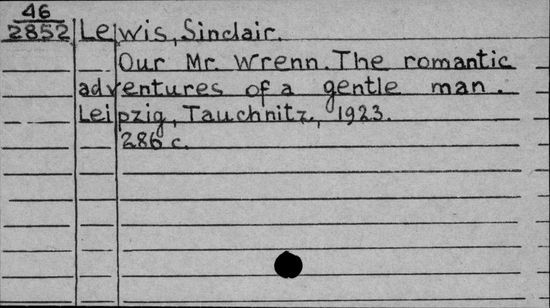 46
2852
Lewis, Sinclair.
Our Mr. Wrenn. The romantic
adventures of a gentle man.
Leipzig, Tauchnitz, 1923.
286 c.